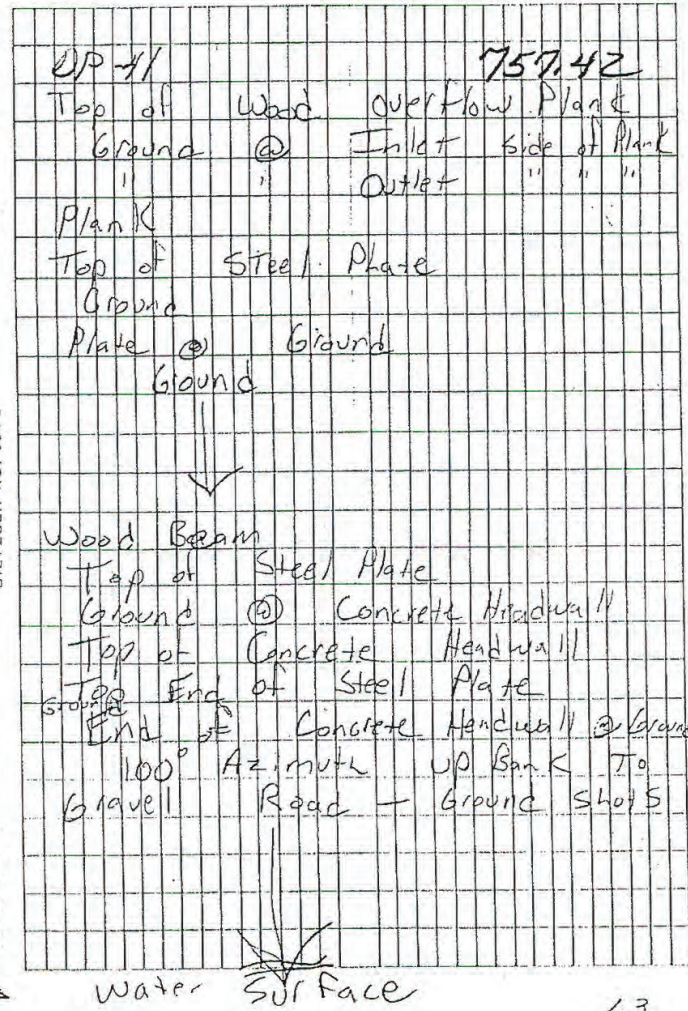 DP-41 757.42
Top of Wood Overflow Plank
Ground @ Inlet Side of Plank
" " Outlet " " "
Plank
Top of Steel Plate
Ground
Plate @ Ground
Ground
Wood Beam
Top of Steel Plate
Ground @ Concrete Headwall
Top of Concrete Headwall
Top End of Steel Plate
Ground @
End of Concrete Headwall @ Ground
100° Azimuth up Bank To
Gravell Road — Ground Shots
Water Surface
63